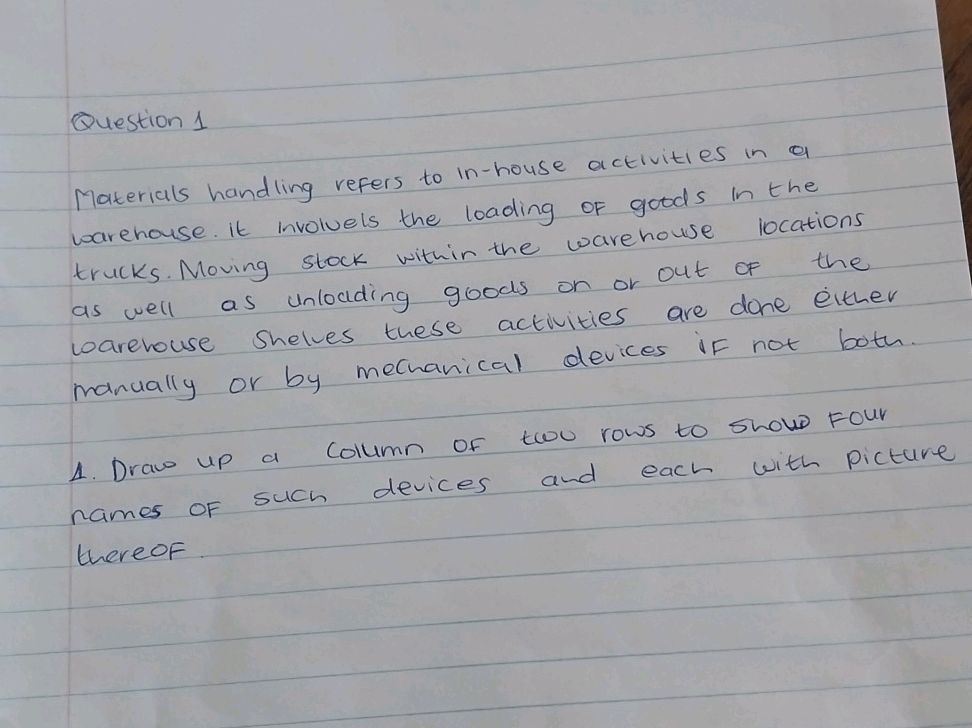 Question 1
Materials handling refers to in-house activities in a
warehouse. it involvels the loading of goods in the
trucks. Moving stock within the warehouse locations
as well as unloading goods on or out of the
warehouse shelves these activities are done either
manually or by mechanical devices if not both.
1. Draw up a column of two rows to show four
names of such devices and each with picture
thereof.